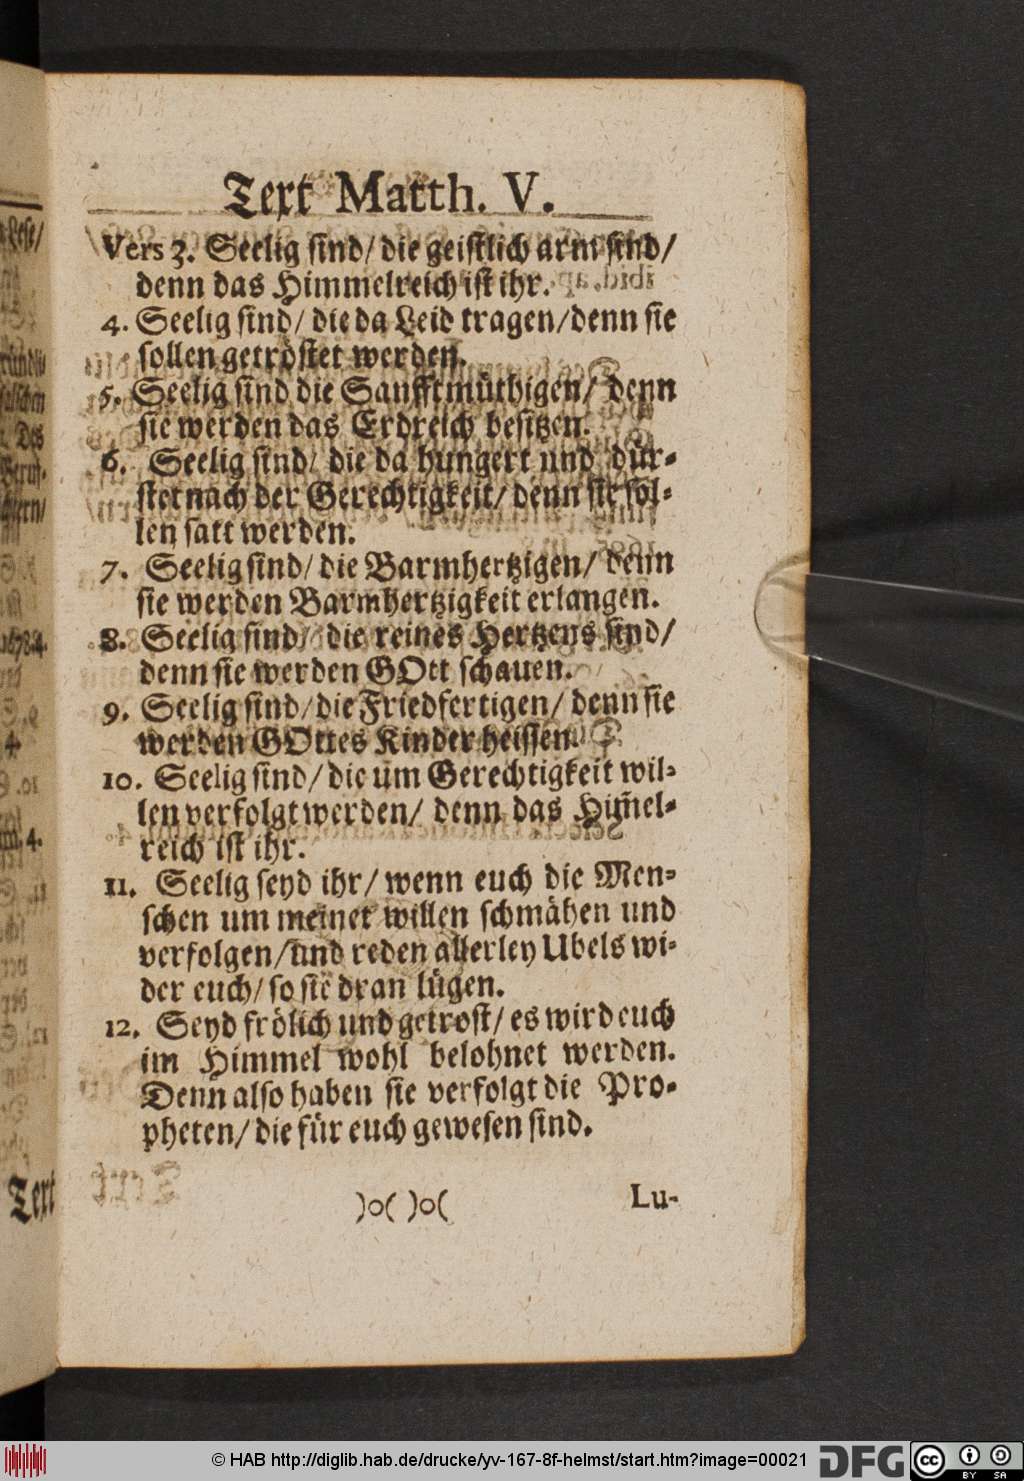 Text Matth. V.
Vers 3. Seelig sind/ die geistlich arm sind/
denn das Himmelreich ist ihr.
4. Seelig sind/ die da Leid tragen/ denn sie
sollen getröstet werden.
5. Seelig sind die Sanfftmüthigen/ denn
sie werden das Erdreich besitzen.
6. Seelig sind/ die da hungert und dür-
stet nach der Gerechtigkeit/ denn sie sol-
len satt werden.
7. Seelig sind/ die Barmhertzigen/ denn
sie werden Barmhertzigkeit erlangen.
8. Seelig sind/ die reines Hertzens sind/
denn sie werden GOtt schauen.
9. Seelig sind/ die Friedfertigen/ denn sie
werden GOttes Kinder heissen.
10. Seelig sind/ die um Gerechtigkeit wil-
len verfolgt werden/ denn das Him̃el-
reich ist ihr.
11. Seelig seyd ihr/ wenn euch die Men-
schen um meinet willen schmähen und
verfolgen/ und reden allerley Ubels wi-
der euch/ so sie dran lügen.
12. Seyd frölich und getrost/ es wird euch
im Himmel wohl belohnet werden.
Denn also haben sie verfolgt die Pro-
pheten/ die für euch gewesen sind.
)o( )o(
Lu-
Text
© HAB http://diglib.hab.de/drucke/yv-167-8f-helmst/start.htm?image=00021
DFG
cc BY SA